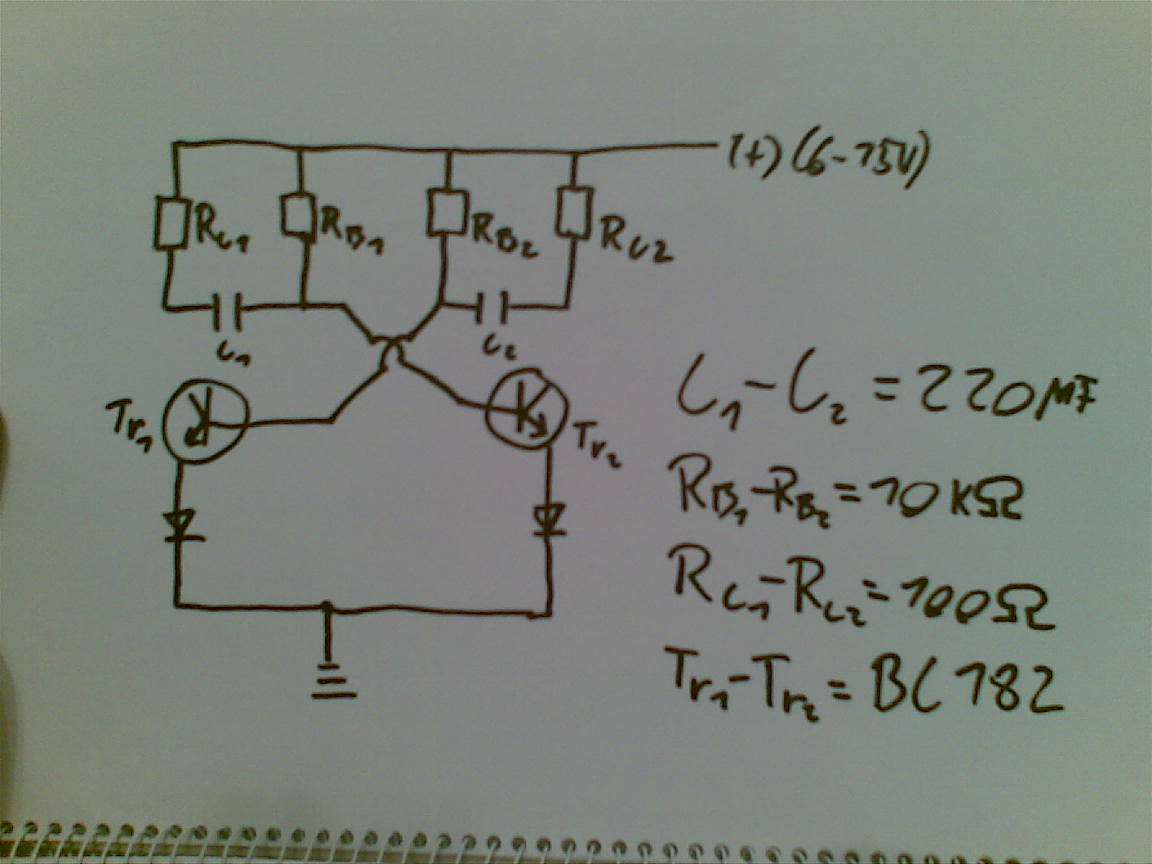 (+) (6-15V)
R_C1 R_B1 R_B2 R_C2
C1 C2
Tr1 Tr2
C1-C2 = 220µF
R_B1-R_B2 = 10kΩ
R_C1-R_C2 = 100Ω
Tr1-Tr2 = BC 182